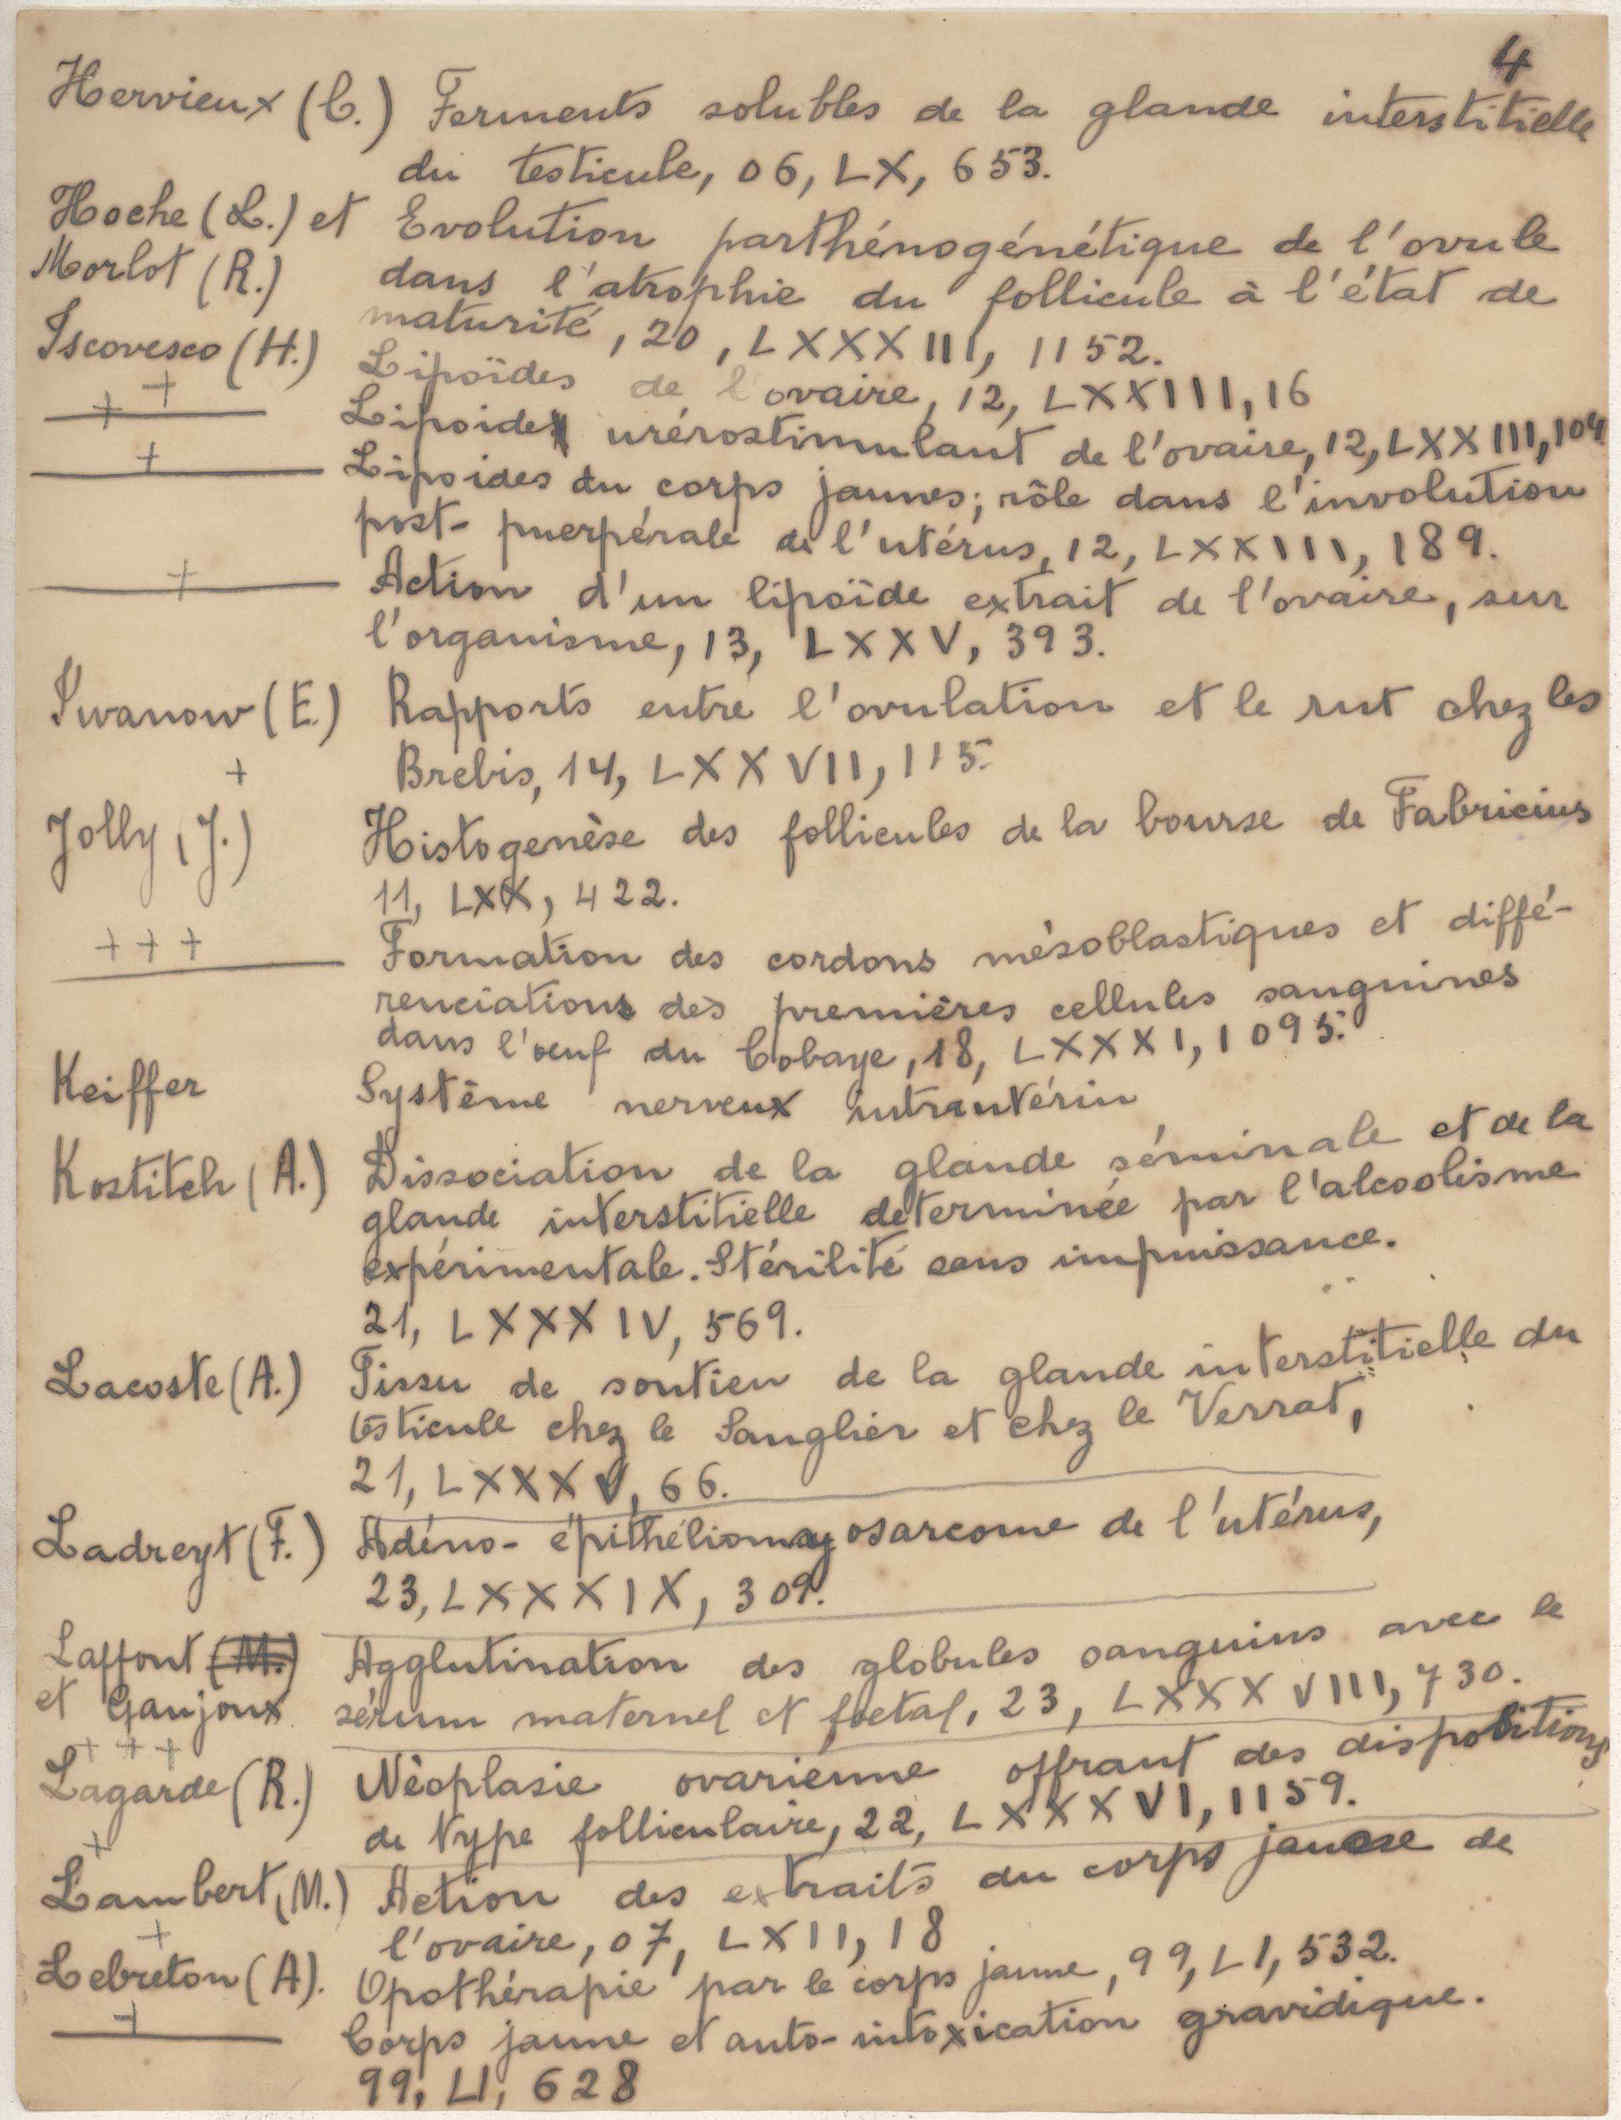 4
Hervieux (C.) Ferments solubles de la glande interstitielle
du testicule, 06, LX, 653.
Hoche (L.) et Evolution parthénogénétique de l'ovule
Morlot (R.) dans l'atrophie du follicule à l'état de
maturité, 20, LXXXIII, 1152.
Iscovesco (H.) Lipoïdes de l'ovaire, 12, LXXIII, 16
+ + Lipoide urérostimulant de l'ovaire, 12, LXXIII, 104
+ Lipoides du corps jaunes; rôle dans l'involution
post-puerpérale de l'utérus, 12, LXXIII, 189.
+ Action d'un lipoïde extrait de l'ovaire, sur
l'organisme, 13, LXXV, 393.
Iwanow (E.) Rapports entre l'ovulation et le rut chez les
+ Brebis, 14, LXXVII, 115.
Jolly (J.) Histogenèse des follicules de la bourse de Fabricius
11, LXX, 422.
+ + + Formation des cordons mésoblastiques et diffé-
renciations des premières cellules sanguines
dans l'oeuf du Cobaye, 18, LXXXI, 1095.
Keiffer Système nerveux intrautérin
Kostitch (A.) Dissociation de la glande séminale et de la
glande interstitielle determinée par l'alcoolisme
expérimentale. Stérilité sans impuissance.
21, LXXXIV, 569.
Lacoste (A.) Tissu de soutien de la glande interstitielle du
testicule chez le Sanglier et chez le Verrat,
21, LXXXV, 66.
Ladreyt (F.) Adéno-épithéliomyosarcome de l'utérus,
23, LXXXIX, 309.
Laffont (M.) Agglutination des globules sanguins avec le
et Gaujoux sérum maternel et foetal, 23, LXXXVIII, 730.
+ + +
Lagarde (R.) Néoplasie ovarienne offrant des dispositions
+ de type folliculaire, 22, LXXXVI, 1159.
Lambert (M.) Action des extraits du corps jaune de
+ l'ovaire, 07, LXII, 18
Lebreton (A). Opothérapie par le corps jaune, 99, LI, 532.
+ Corps jaune et auto-intoxication gravidique.
99, LI, 628